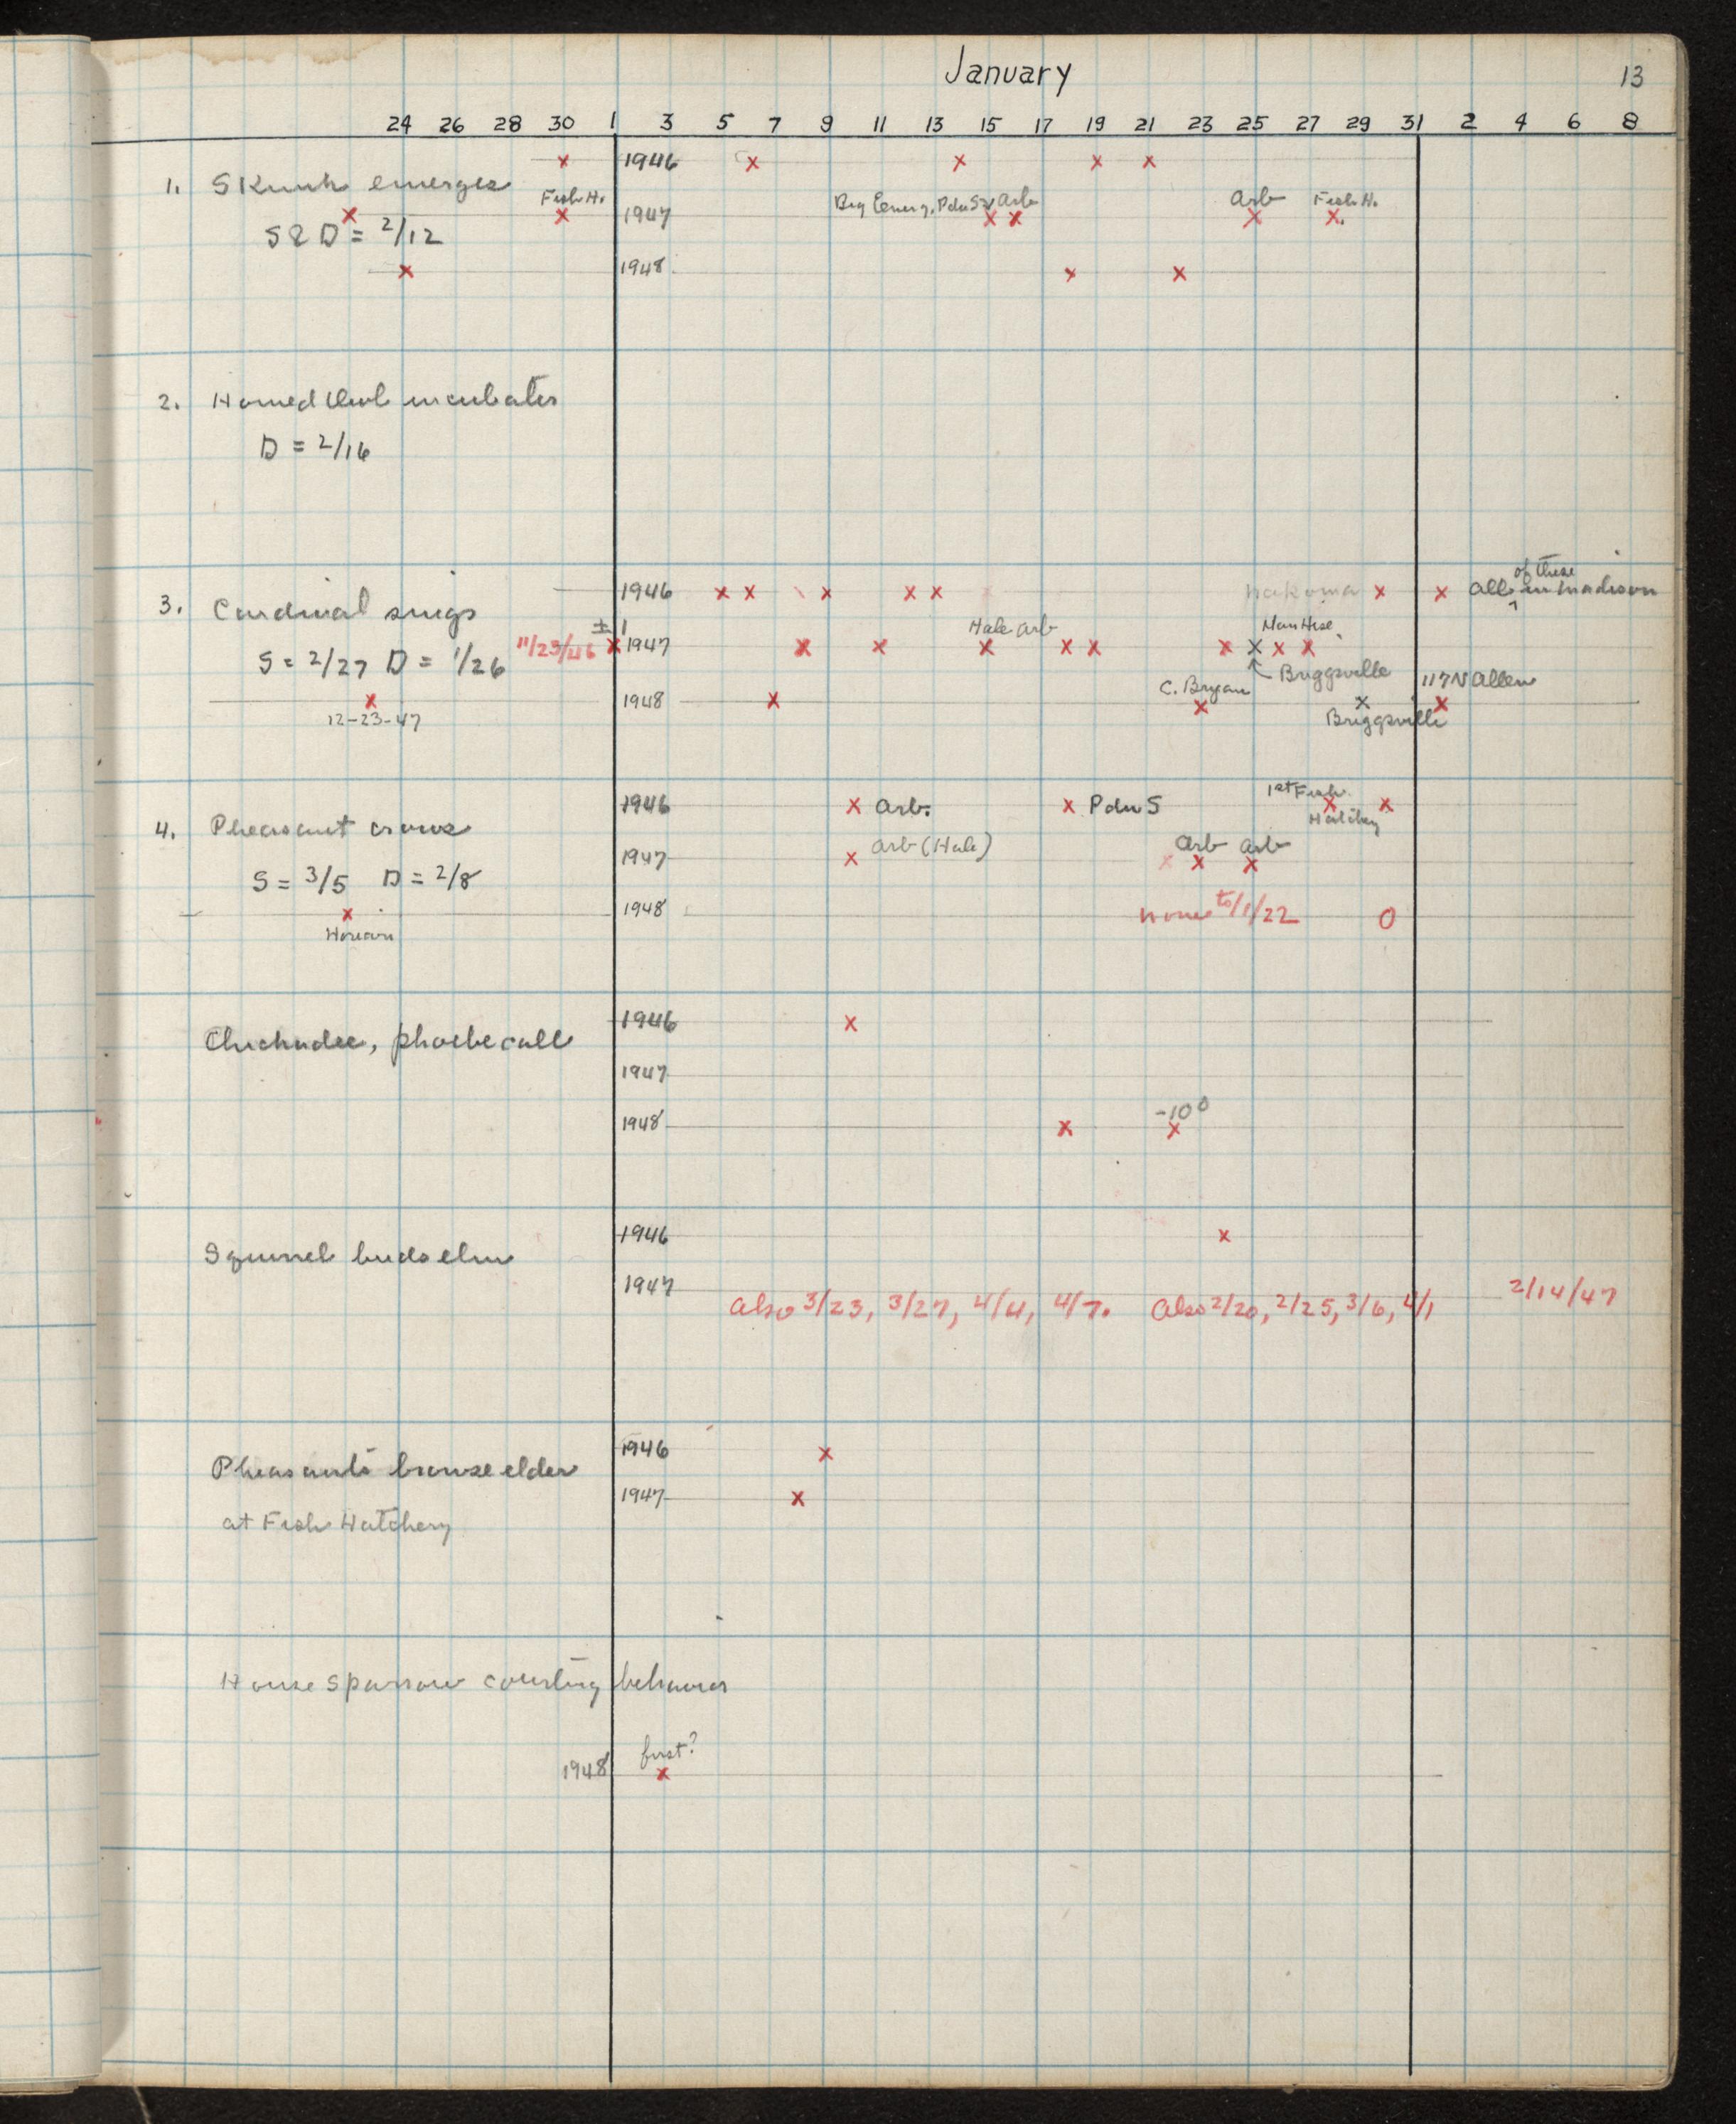 January
13
24 26 28 30 1 3 5 7 9 11 13 15 17 19 21 23 25 27 29 31 2 4 6 8
x 1946 x x x x
1. Skunk emerges
Fish H. Arb Arb Fish H.
x x 1947 x x x x.
S & D = 2/12
x 1948 x x
2. Horned Owl incubates
D = 2/16
1946 x x x x x Nakoma x x All of these in Madison
3. Cardinal sings
± 1 Hale Arb
11/23/46 x 1947 x x x x x x x x x
S = 2/27 D = 1/26
↖ Briggsville
C. Bryan 117 N Allen
x 1948 x x x x
12-23-47 Briggsville
1946 x Arb. x Pdu S 1st Fish Hatchery x x
4. Pheasant crows
Arb (Hale) Arb Arb
1947 x x x x
S = 3/5 D = 2/8
x 1948 none to 1/22 0
Horicon
1946 x
Chickadee, phoebe call
1947
-10°
1948 x x
1946 x
Squirrel buds elm
1947 Also 3/23, 3/27, 4/4, 4/7. Also 2/20, 2/25, 3/6, 4/1 2/14/47
1946 x
Pheasants browse elder
1947 x
at Fish Hatchery
House Sparrow courting behavior
first?
1948 x